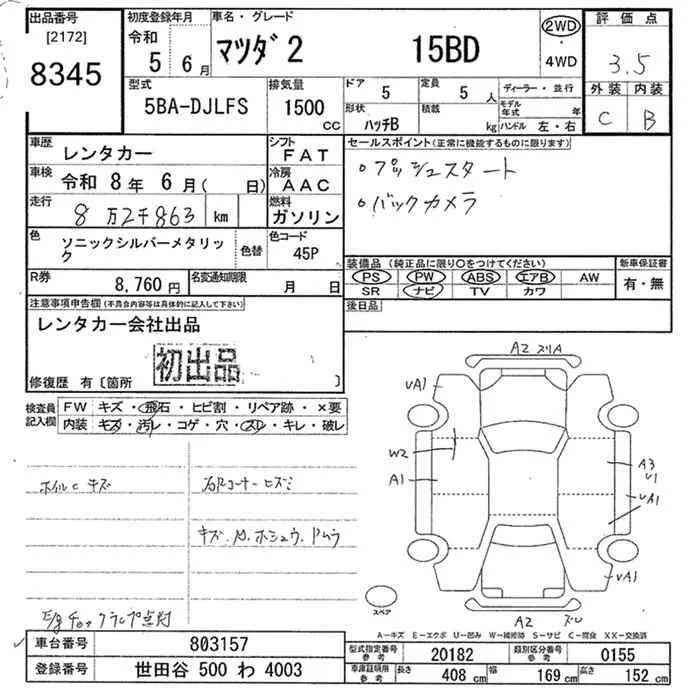 出品番号
[2172]
8345
初度登録年月
令和
5 6月
車名・グレード
マツダ2 15BD
2WD
・
4WD
評価点
3.5
外装 内装
C B
型式
5BA-DJLFS
排気量
1500
CC
ドア 5
定員 5 人
形状 ハッチB
積載 kg
ディーラー・並行
モデル年式 年
ハンドル 左・右
車歴 レンタカー
シフト FAT
車検 令和 8年 6月( 日)
冷房 AAC
走行 8万2千863 km
燃料 ガソリン
色 ソニックシルバーメタリック
色替
色コード 45P
R券 8,760円
名変通知期限 月 日
セールスポイント(正常に機能するものに限ります)
○プッシュスタート
○バックカメラ
装備品(純正品に限り〇をつけてください)
PS PW ABS エアB AW
SR ナビ TV カワ
新車保証書
有・無
後日品
注意事項申告欄(不具合内容等は具体的に記入して下さい)
レンタカー会社出品
初出品
修復歴 有〔箇所 〕
検査員記入欄
FW キズ・飛石・ヒビ割・リペア跡・×要
内装 キズ・汚レ・コゲ・穴・スレ・キレ・破レ
ホイルcキズ
右Rコーナーヒズミ
キズ.A.ホシュウ.ドムラ
E/gチェックランプ点灯
A2 スリA
uA1
W2
A1
A3
U1
uA1
uA1
A2 ズレ
スペア
A-キズ E-エクボ U-凹み W-補修跡 S-サビ C-腐食 XX-交換済
車台番号 803157
登録番号 世田谷 500 わ 4003
型式指定番号 参考 20182
類別区分番号 参考 0155
車庫証明用 参考
長さ 408 cm
幅 169 cm
高さ 152 cm